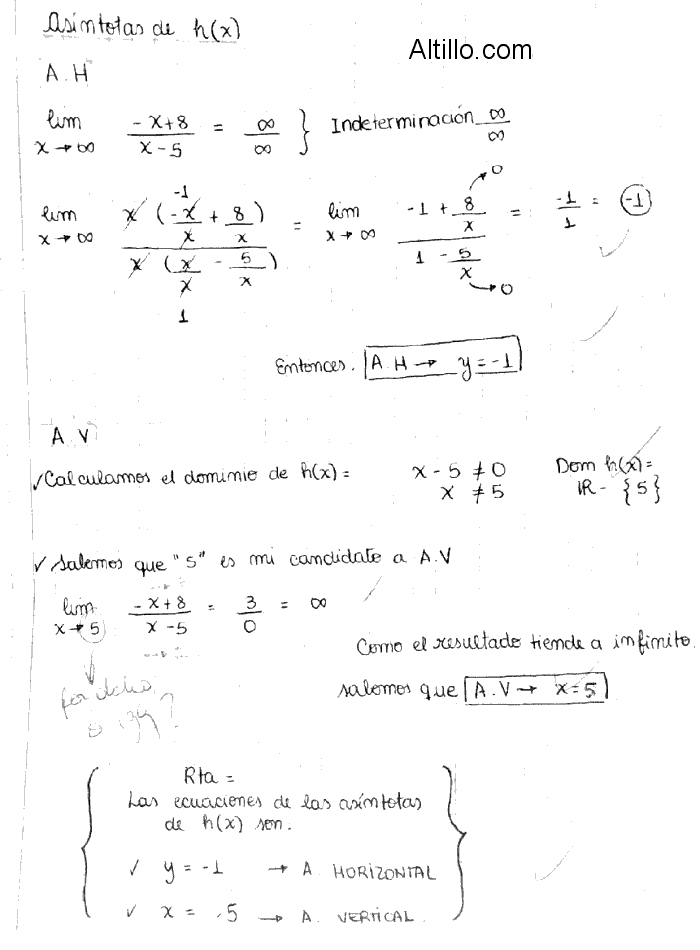 Asíntotas de h(x)
Altillo.com
A.H
lim x→∞ (-x+8)/(x-5) = ∞/∞ } Indeterminación ∞/∞
lim x→∞ x(-x/x + 8/x) / x(x/x - 5/x) = lim x→∞ (-1 + 8/x) / (1 - 5/x) = -1/1 = -1
-1
1
→0
→0
Entonces. A.H → y = -1
A.V
✓Calculamos el dominio de h(x) = x - 5 ≠ 0 Dom h(x) =
x ≠ 5 IR - {5}
✓ Sabemos que "5" es mi candidato a A.V
lim x→5 (-x+8)/(x-5) = 3/0 = ∞
Como el resultado tiende a infinito.
sabemos que A.V → x = 5
por
?
Rta =
Las ecuaciones de las asíntotas
de h(x) son.
✓ y = -1 → A. HORIZONTAL
✓ x = .5 → A. VERTICAL.